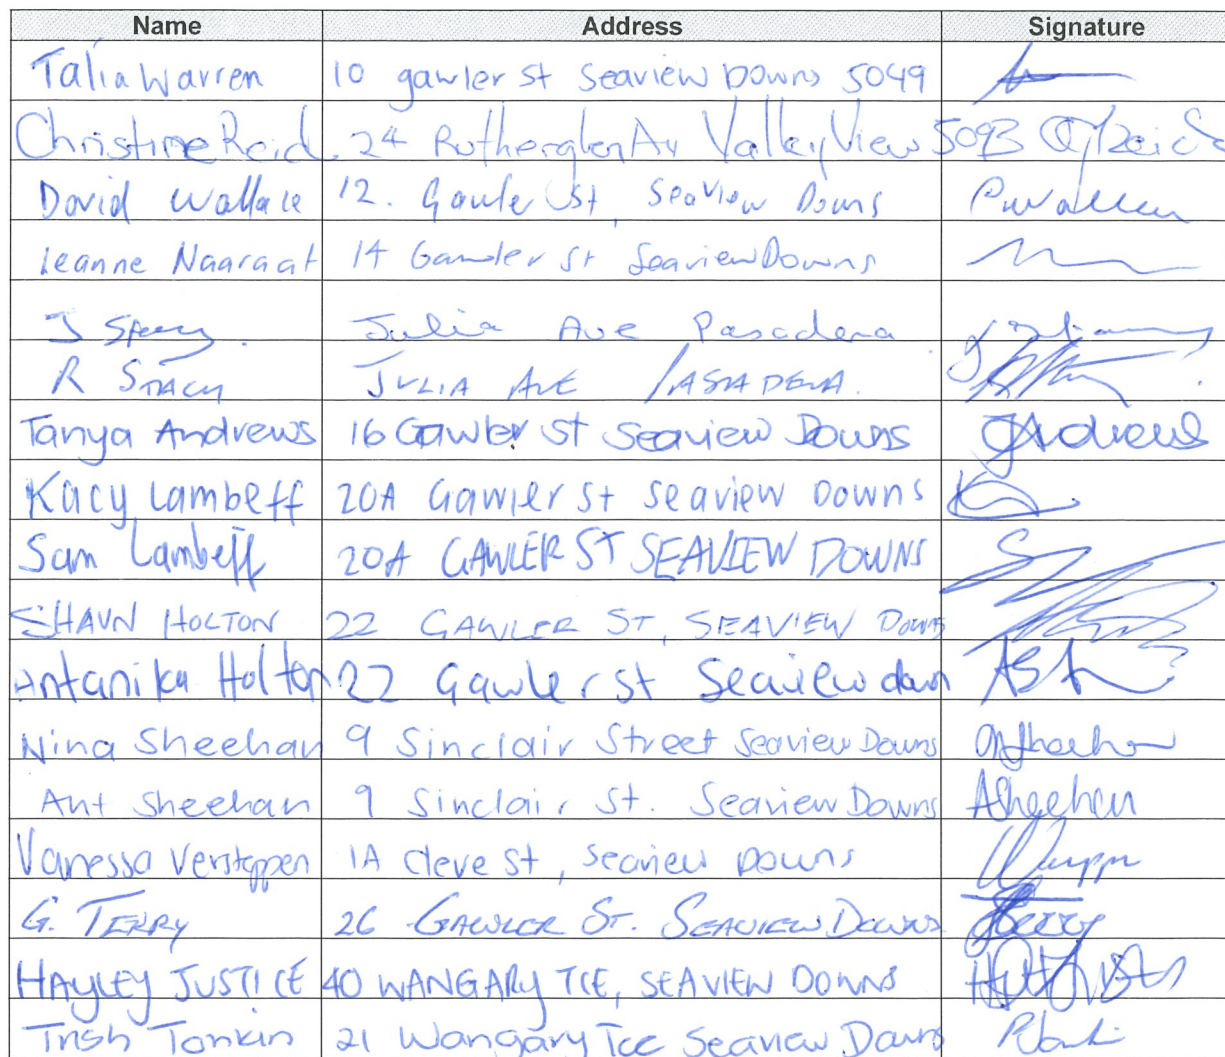 Name Address Signature
Talia Warren 10 gawler st Seaview Downs 5049
Christine Reid 24 Rutherglen Av Valley View 5093 Reid
David Wallace 12. Gawler St, Seaview Downs
Leanne Naaraat 14 Gawler St Seaview Downs
J Julia Ave Pasadena
R Stacy JULIA AVE
Tanya Andrews 16 Gawler St Seaview Downs TAndrews
Kacy Lambeff 20A Gawler St Seaview Downs
Sam Lambeff 20A GAWLER ST SEAVIEW DOWNS
SHAUN HOLTON 22 GAWLER ST, SEAVIEW DOWNS
Antanika Holton 22 Gawler st Seaview down
Nina Sheehan 9 Sinclair Street Seaview Downs
Ant Sheehan 9 Sinclair St. Seaview Downs ASheehan
Vanessa Versteppen 1A Cleve St, Seaview Downs
G. TERRY 26 GAWLER ST. SEAVIEW DOWNS
HAYLEY JUSTICE 40 WANGARY TCE, SEAVIEW DOWNS
Trish Tonkin 21 Wangary Tce Seaview Downs